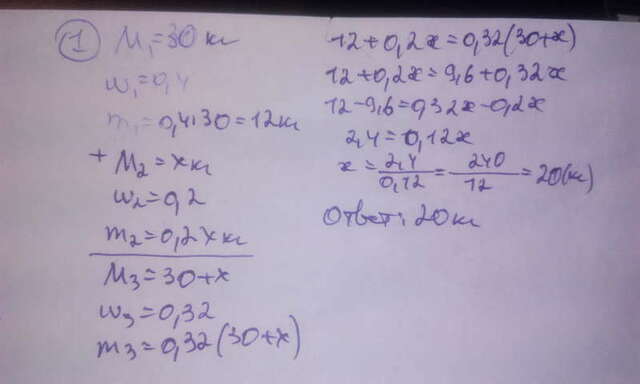 1 M₁=30 кг
w₁=0,4
m₁=0,4·30=12кг
+ M₂=x кг
w₂=0,2
m₂=0,2x кг
M₃=30+x
w₃=0,32
m₃=0,32(30+x)
12+0,2x=0,32(30+x)
12+0,2x=9,6+0,32x
12-9,6=0,32x-0,2x
2,4=0,12x
x=2,4/0,12=240/12=20(кг)
Ответ: 20кг